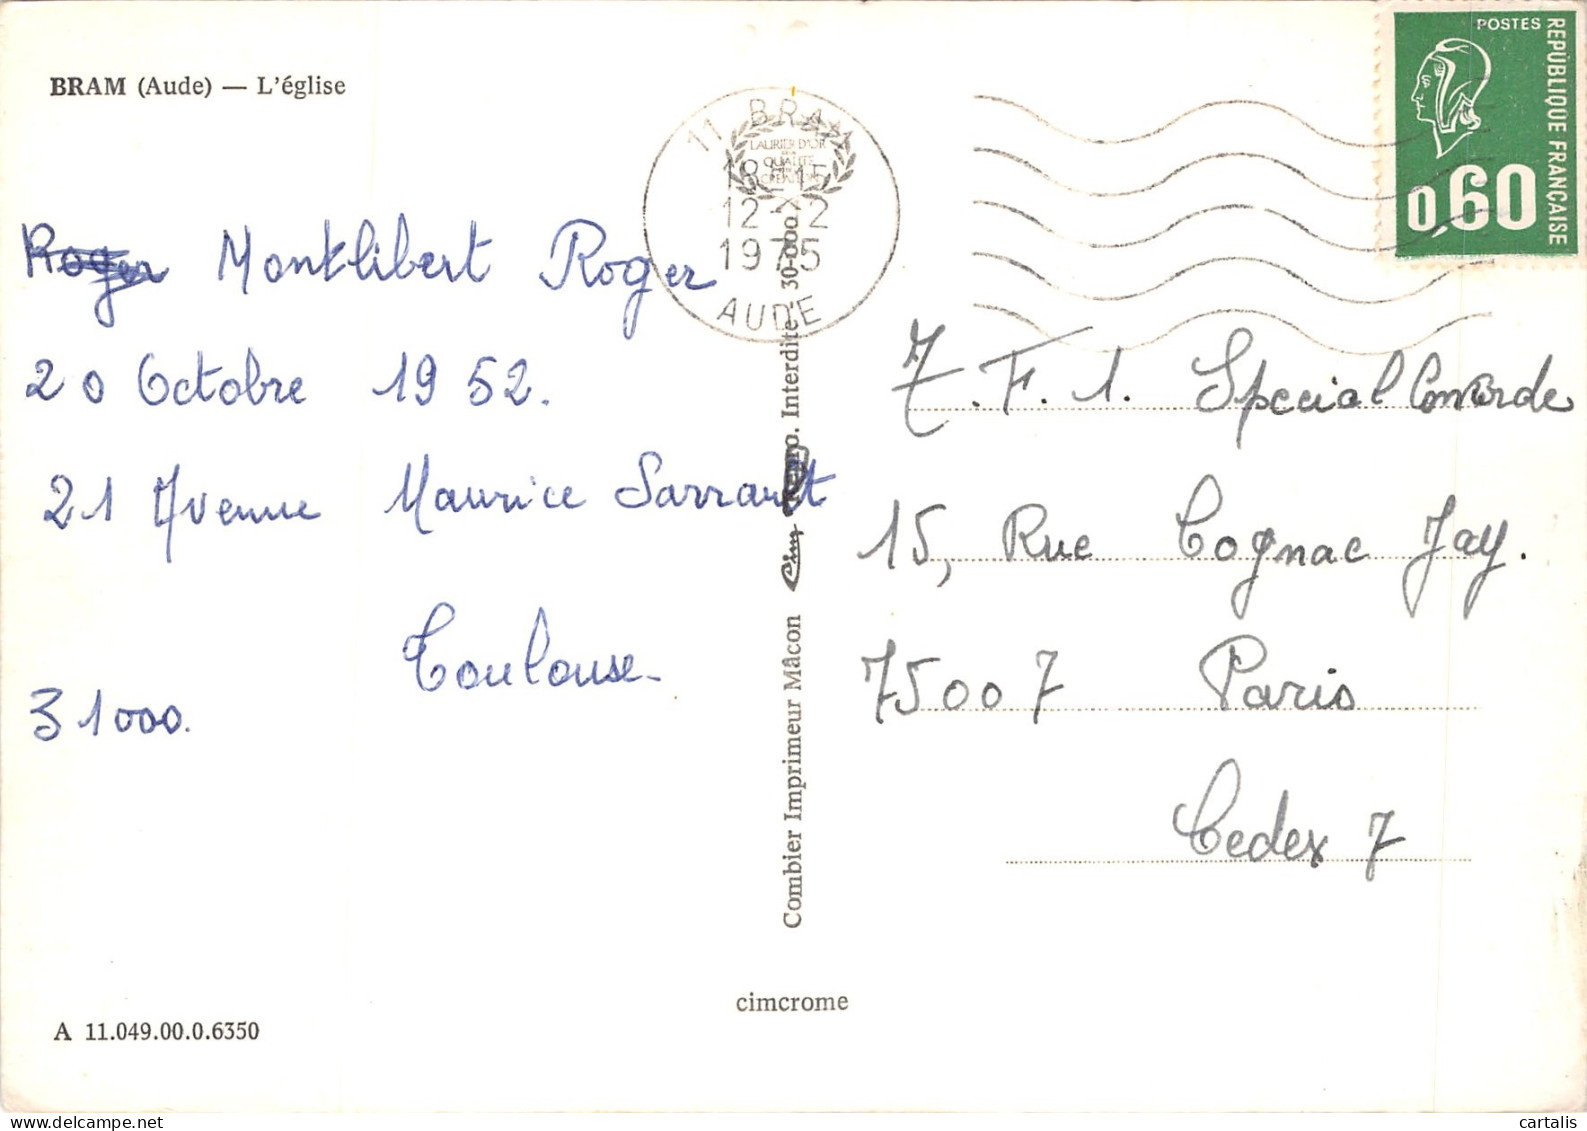 BRAM (Aude) — L'église
11 BRAM
LAURIER D'OR
QUALITÉ
18H15
12-2
1975
AUDE
POSTES
RÉPUBLIQUE FRANÇAISE
0,60
Roger Montlibert Roger
20 Octobre 1952.
21 Avenue Maurice Sarraut
Toulouse-
31000.
Combier Imprimeur Mâcon Cim Repro. Interdite - 30-000
T.F.1. Special Concorde
15, Rue Cognac Jay.
75007 Paris
Cedex 7
cimcrome
A 11.049.00.0.6350
cartalis